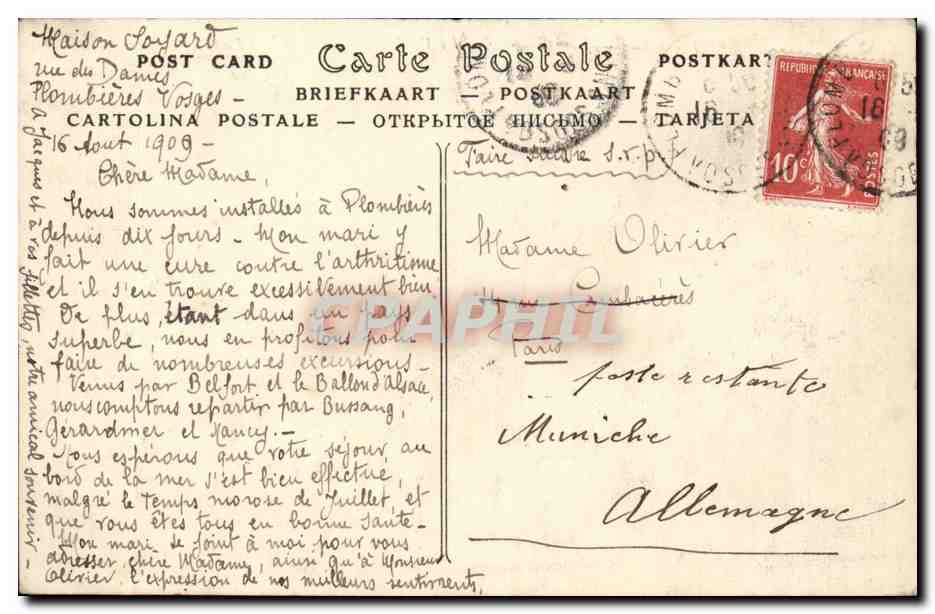 Maison Soyard
rue des Dames
Plombières Vosges -
16 Aout 1909 -
Chère Madame,
Nous sommes installés à Plombières
depuis dix jours - Mon mari y
fait une cure contre l'arthritisme
et il s'en trouve excessivement bien
De plus, étant dans un pays
superbe, nous en profitons pour
faire de nombreuses excursions -
Venus par Belfort et le Ballon d'Alsace,
nous comptons repartir par Bussang,
Gérardmer et Nancy. -
Nous espérons que votre séjour au
bord de la mer s'est bien effectué,
malgré le temps morose de Juillet, et
que vous êtes tous en bonne santé -
Mon mari se joint à moi pour vous
adresser, chère Madame, ainsi qu'à Monsieur
Olivier, l'expression de nos meilleurs sentiments,
à Jacques et à vos fillettes, notre amical souvenir -
POST CARD Carte Postale POSTKART
BRIEFKAART - POSTKAART
CARTOLINA POSTALE - ОТКРЫТОЕ ПИСЬМО - TARJETA
REPUBLIQUE FRANCAISE
10c
POSTES
Faire suivre s.v.p.
Madame Olivier
rue Cambacérès
Paris
poste restante
Muniche
Allemagne
CPAPHIL